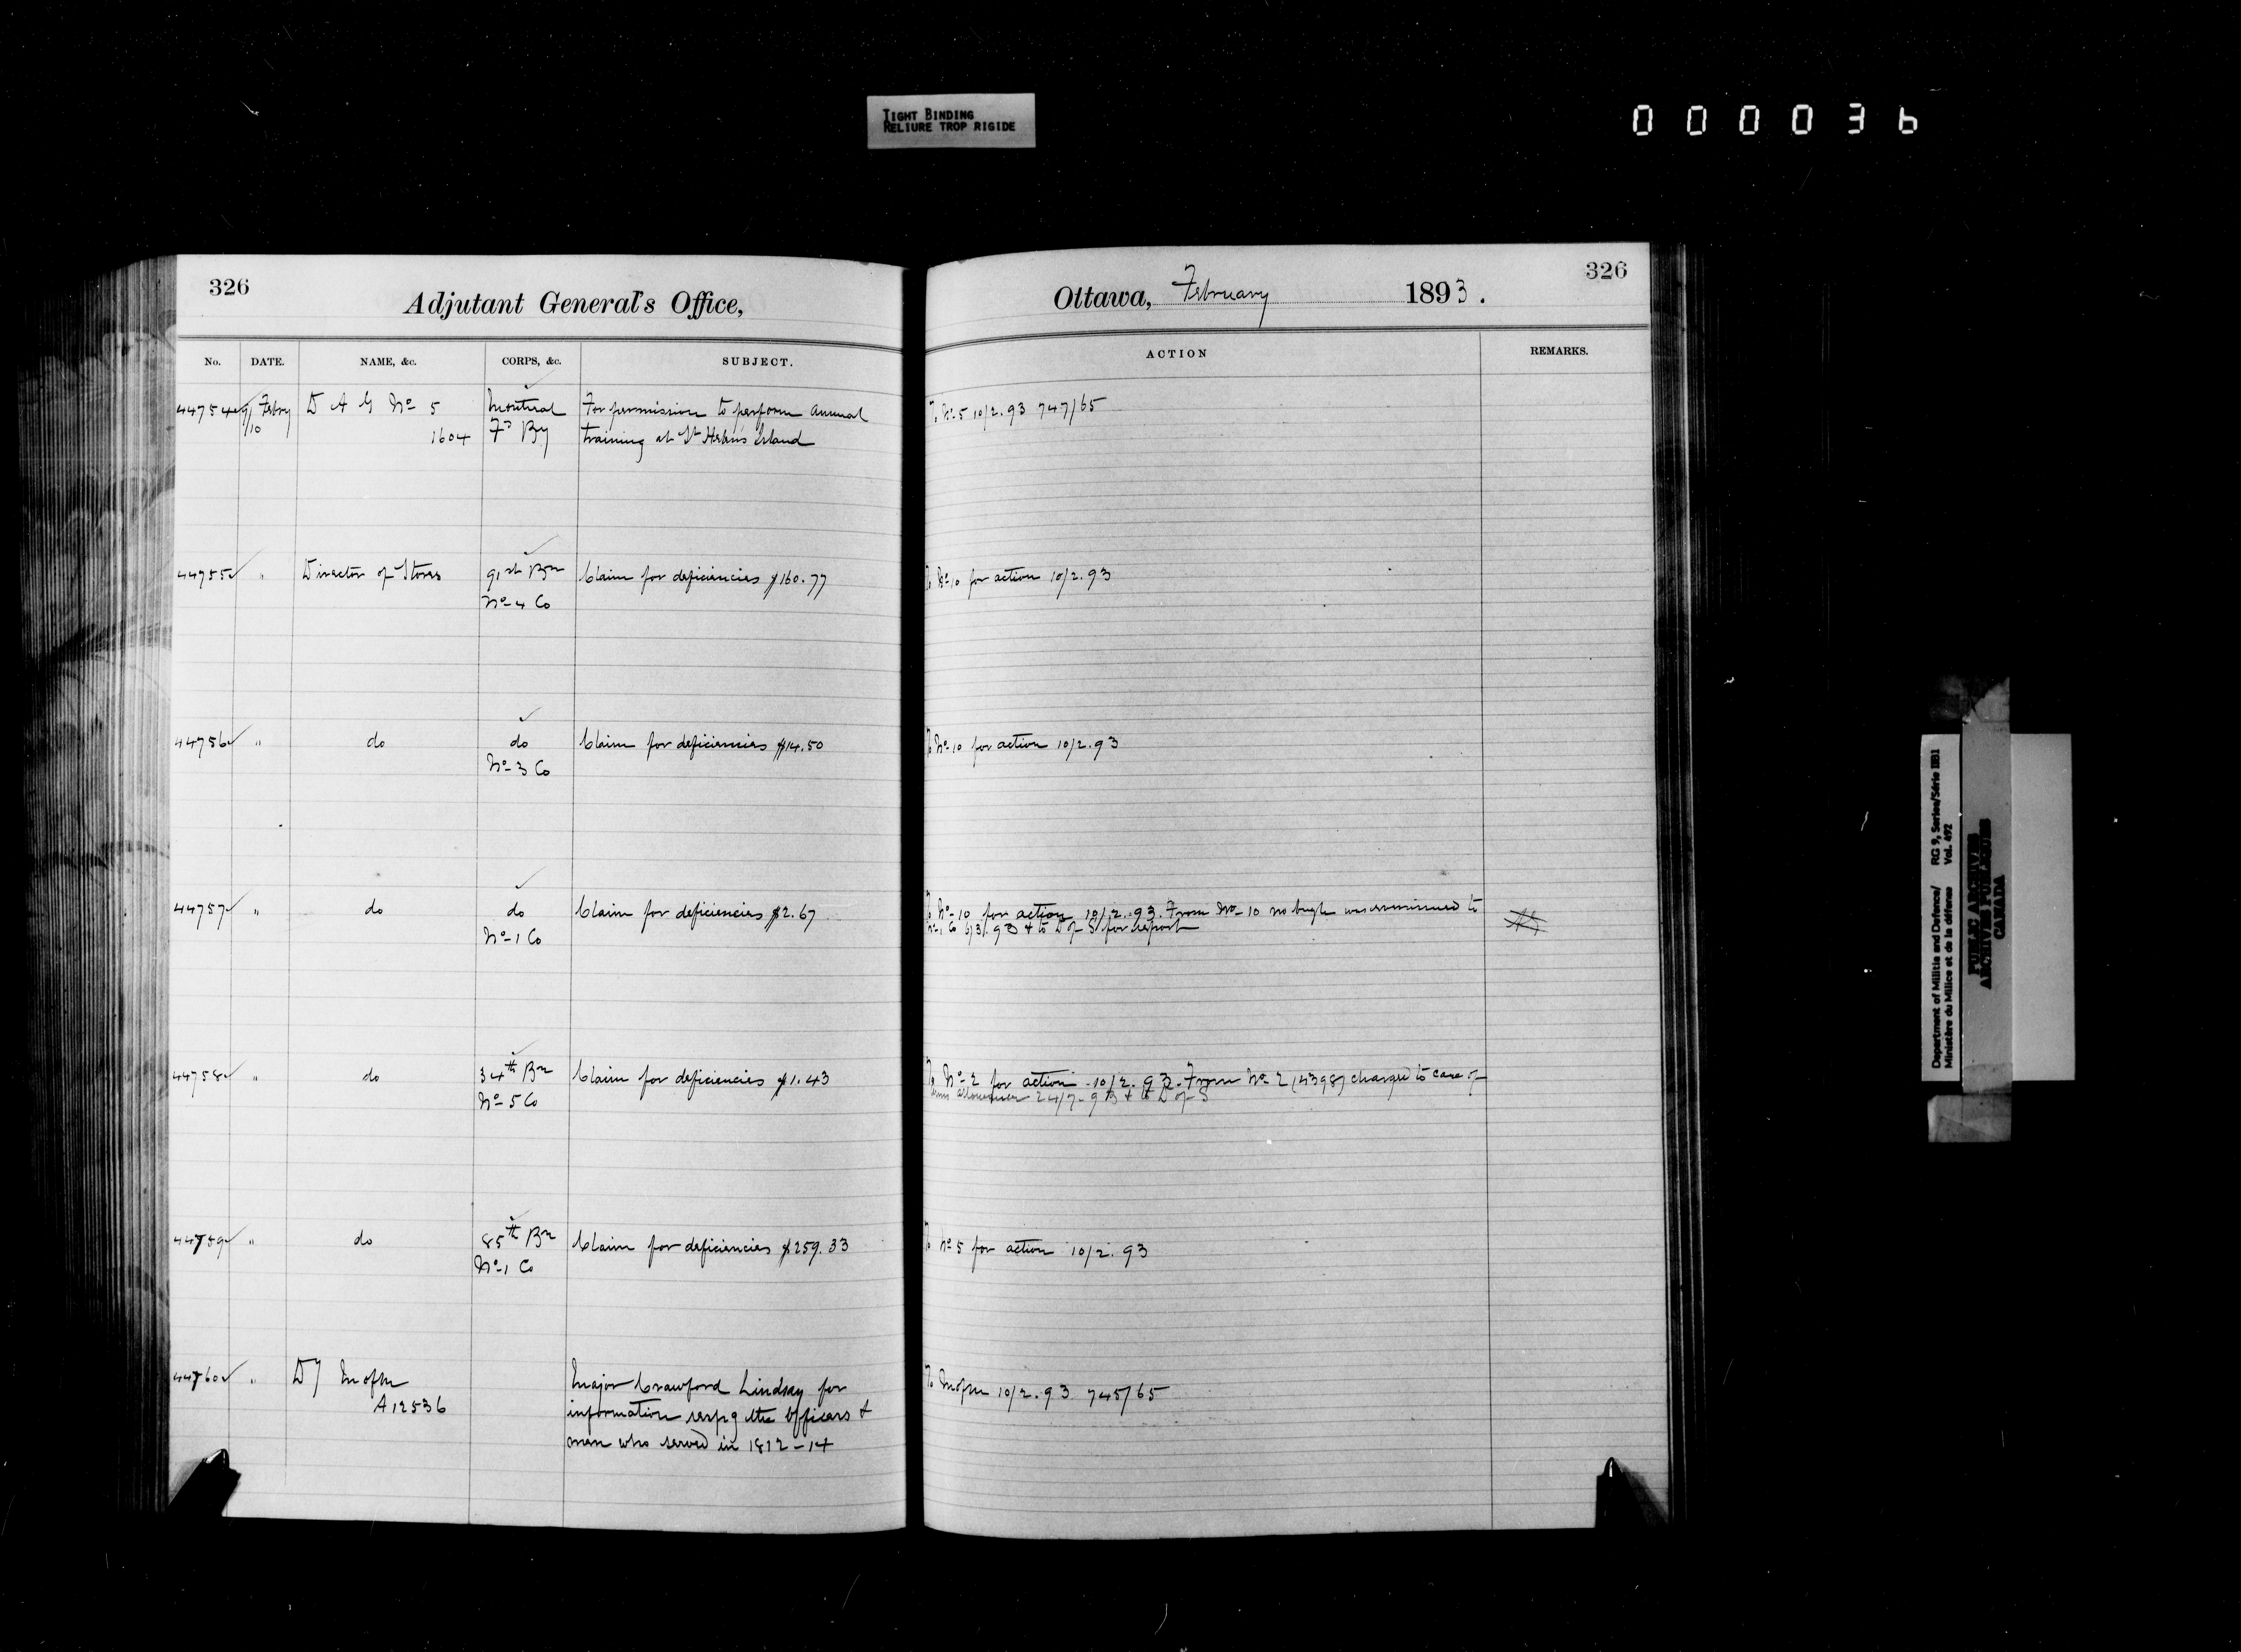 TIGHT BINDING
RELIURE TROP RIGIDE
000036
326
Adjutant General's Office,
Ottawa, February 1893.
326
No. DATE. NAME, &c. CORPS, &c. SUBJECT.
ACTION REMARKS.
44754 9/10 Febry D A G No 5 Montreal For permission to perform annual
1604 Fd By training at St Helens Island
To No 5 10/2.93 747/65
44755 " Director of Stores 91st Bn Claim for deficiencies $160.77
No 4 Co
To No 10 for action 10/2.93
44756 " do do Claim for deficiencies $14.50
No 3 Co
To No 10 for action 10/2.93
44757 " do do Claim for deficiencies $2.67
No 1 Co
To No 10 for action 10/2.93. From No 10 no bugle was issued to
No 1 Co 6/3/.93 & to D of S for report
44758 " do 34th Bn Claim for deficiencies $1.43
No 5 Co
To No 2 for action 10/2.93. From No 2 (4398) charged to care of
arms allowance 24/7-93 & to D of S
44759 " do 85th Bn Claim for deficiencies $259.33
No 1 Co
To No 5 for action 10/2.93
44760 " D M of M Major Crawford Lindsay for
A12536 information respg the officers &
men who served in 1812-14
To M of M 10/2.93 745/65
Department of Militia and Defence/ RG 9, Series/Série IIB1
Ministère du Milice et de la défense Vol. 492
PUBLIC ARCHIVES
ARCHIVES PUBLIQUES
CANADA